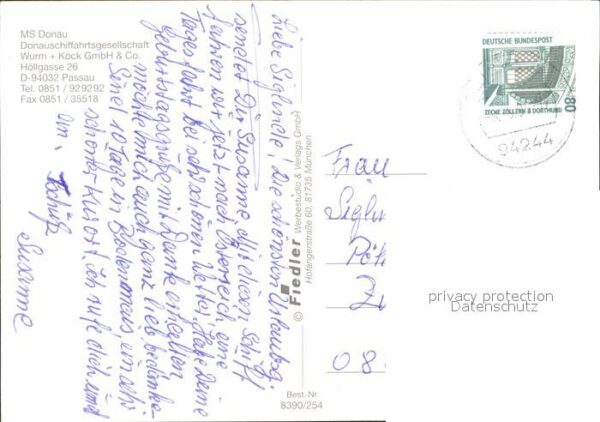 MS Donau
Donauschiffahrtsgesellschaft
Wurm + Köck GmbH & Co.
Höllgasse 26
D-94032 Passau
Tel. 0851 / 929292
Fax 0851 / 35518
Liebe Sieglinde! Die schönsten Urlaubsg.
sendet Dir Susanne. Mit diesem Schiff
fahren wir jetzt nach Österreich, eine
Tagesfahrt bei sehr schönem Wetter. Habe Deine
Geburtstagsgrüße mit Dank erhalten
möchte mich auch ganz lieb bedanke-
Sind 10 Tage in Bodenmais, ein sehr
schöner Kurort, ich rufe dich und
an. Tschüß
Susanne
© Fiedler Werbestudio & Verlags GmbH
Hofangerstraße 60, 81735 München
Best. Nr.
8390/254
DEUTSCHE BUNDESPOST
80
ZECHE ZOLLERN II DORTMUND
94244
Frau
Sigl
08
privacy protection
Datenschutz